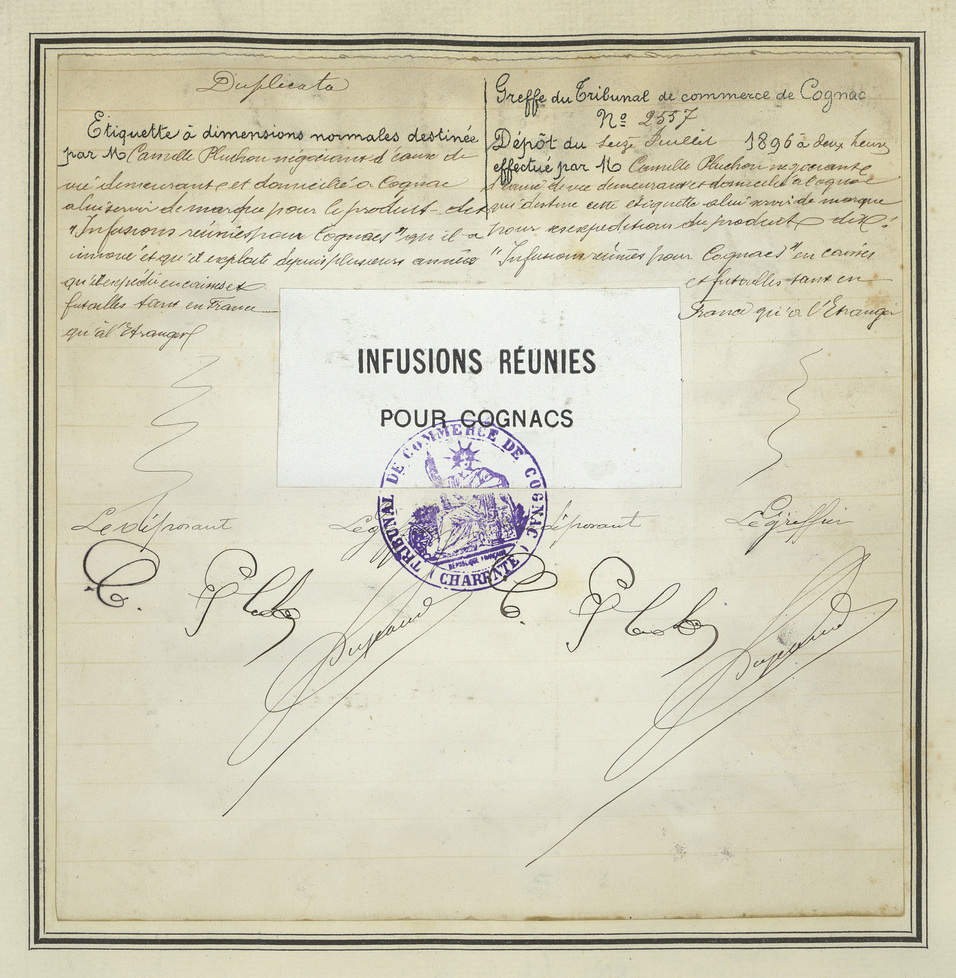 Duplicata
Etiquette à dimensions normales destinée
par M Camille Pluchon négociant d'eaux de
vie demeurant et domicilié à Cognac
à lui servir de marque pour le produit dit
"Infusions réunies pour Cognacs" qu'il a
innové et qu'il exploite depuis plusieurs années
qu'il expédie en caisses et
futailles tant en France
qu'à l'Etranger
Greffe du Tribunal de commerce de Cognac
Nº 2557
Dépôt du seize Juillet 1896 à deux heures
effectué par M Camille Pluchon négociant
d'eaux de vie demeurant et domicilié à Cognac
qui destine cette étiquette à lui servir de marque
pour ses expéditions du produit dit:
"Infusions réunies pour Cognacs" en caisses
et futailles tant en
France qu'à l'Etranger
INFUSIONS RÉUNIES
POUR COGNACS
TRIBUNAL DE COMMERCE DE COGNAC
RÉPUBLIQUE FRANÇAISE
(CHARENTE)
Le déposant
Le déposant
Le Greffier
C. Pluchon
C. Pluchon